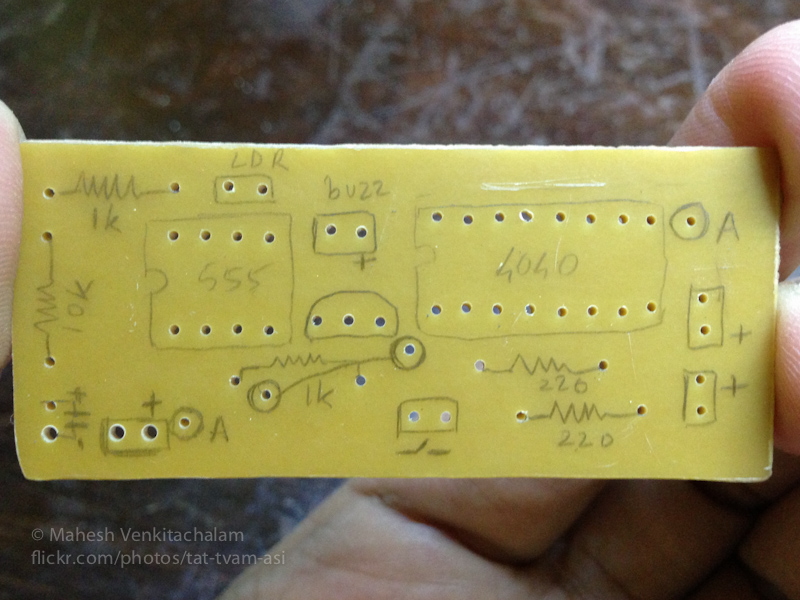 LDR
1k
buzz
+
555
4040
A
10k
+
1k
220
+
+
A
220
© Mahesh Venkitachalam
flickr.com/photos/tat-tvam-asi